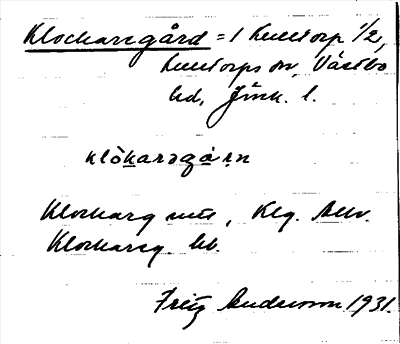 Klockaregård = 1 Kulltorp 1/2,
Kulltorps sn, Västbo
hd, Jönk. l.
klòkaragàṛn
Klockareg
Klockareg. hb.
Fritz Andersson 1931.